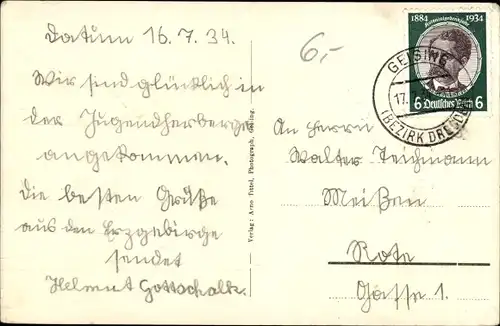 Datum 16.7.34.
Wir sind glücklich in
der Jugendherberge
angekommen.
Die besten Grüße
aus dem Erzgebirge
sendet
Helmut Gottschalk.
6,-
Verlag: Arno Pittel, Photograph, Geising.
1884 1934
6 Deutsches Reich 6
GEISING
17.7.
(BEZIRK DRESDEN)
An Herrn
Walter Teichmann
Meißen
Rote
Gasse 1.